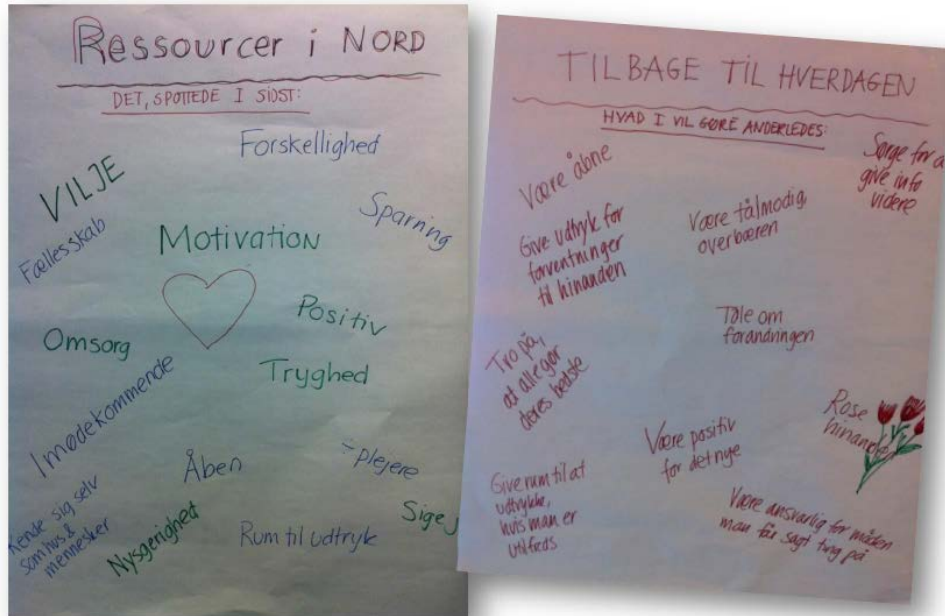 Ressourcer i NORD
DET, SPOTTEDE I SIDST:
Forskellighed
VILJE
Fællesskab
Sparning
Motivation
Positiv
Omsorg
Tryghed
Imødekommende
Åben
÷plejere
Kende sig selv
som hus &
mennesker
Nysgerrighed
Rum til udtryk
Sige
TILBAGE TIL HVERDAGEN
HVAD I VIL GØRE ANDERLEDES:
Sørge for
give info
videre
Være åbne
Give udtryk for
forventninger
til hinanden
Være tålmodig,
overbæren
Tro på,
at alle gør
deres bedste
Tale om
forandringen
Rose
Være positiv
for det nye
Give rum til at
udtrykke,
hvis man er
utilfreds
Være ansvarlig for måden
man får sagt ting på